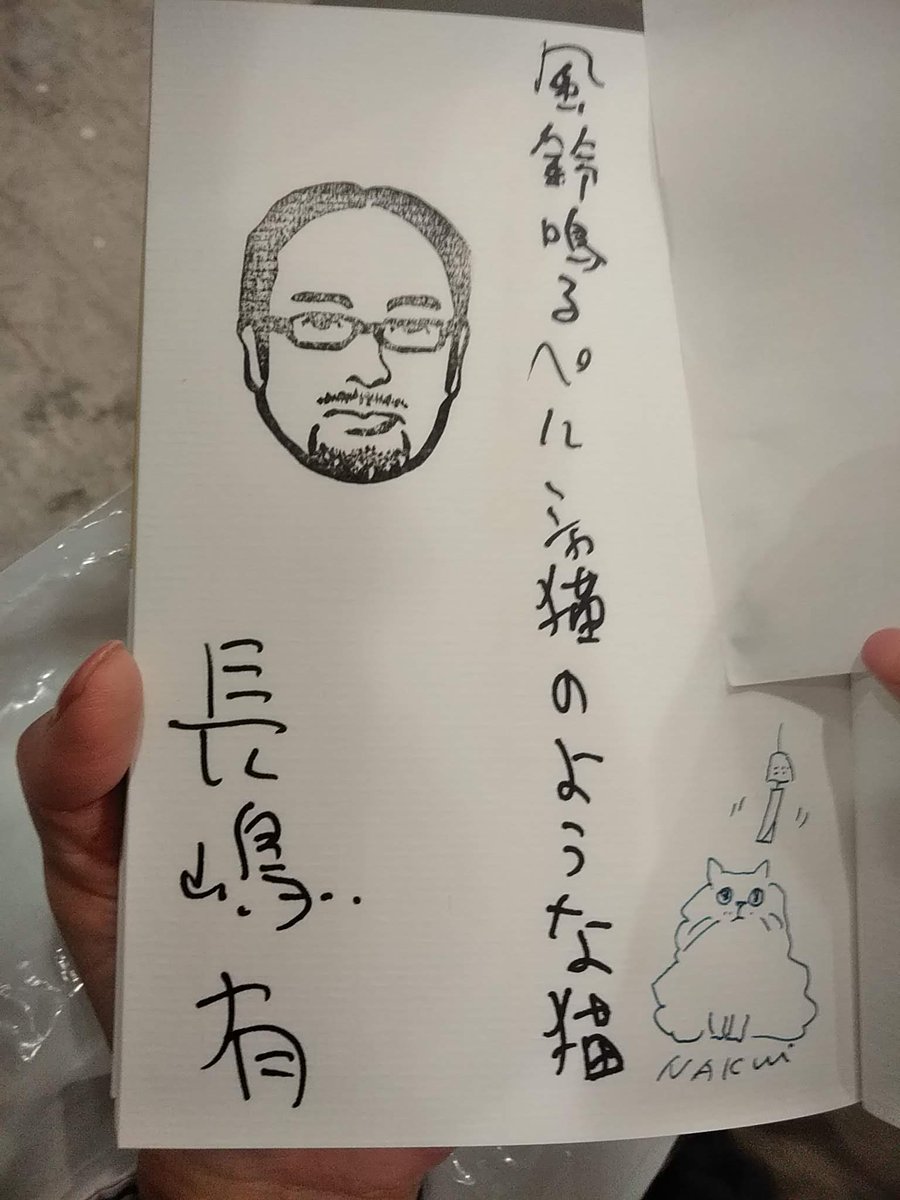 風鈴鳴るペルシャ猫のような猫
長嶋有
NAKUI